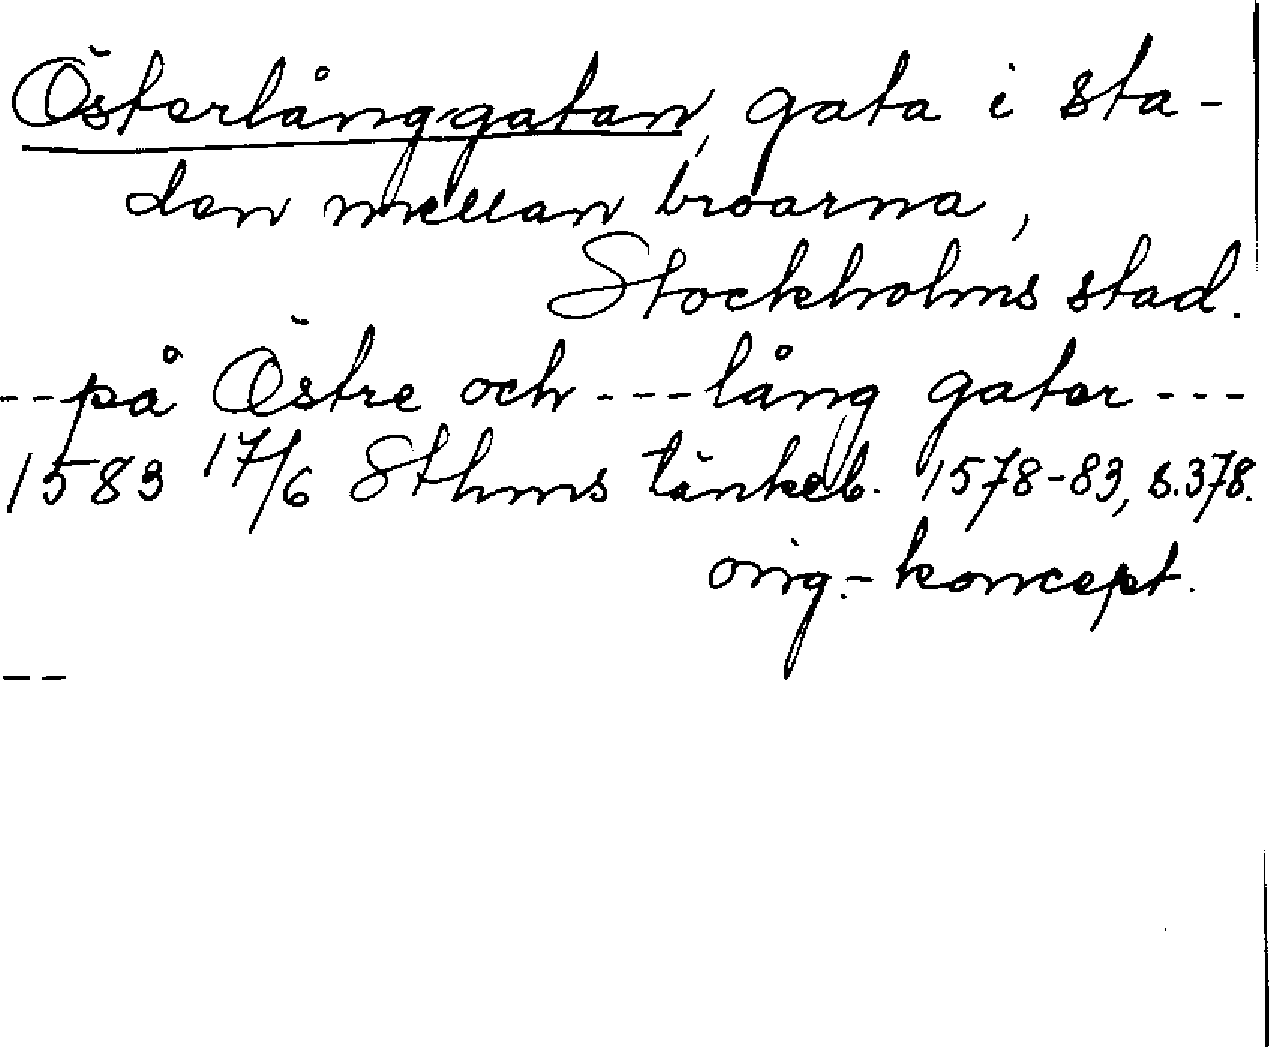 Österlånggatan, gata i sta-
den mellan broarna,
Stockholms stad.
--på Östre och---lång gater---
1583 17/6 Sthms tänkeb. 1578-83, s.378.
orig.-koncept.
--